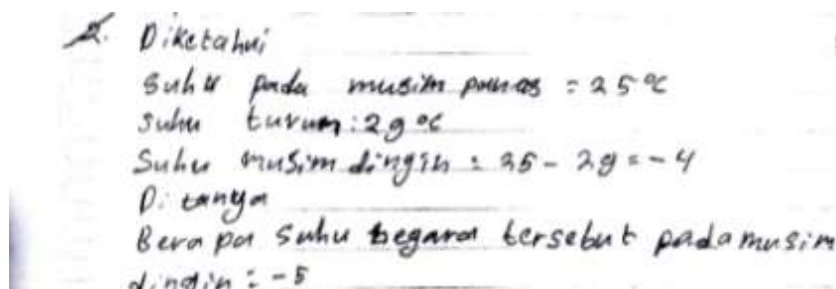 2. Diketahui
Suhu pada musim panas = 25°C
Suhu turun : 29°C
Suhu musim dingin = 25 - 29 = -4
Ditanya
Berapa suhu negara tersebut pada musim
dingin : -5